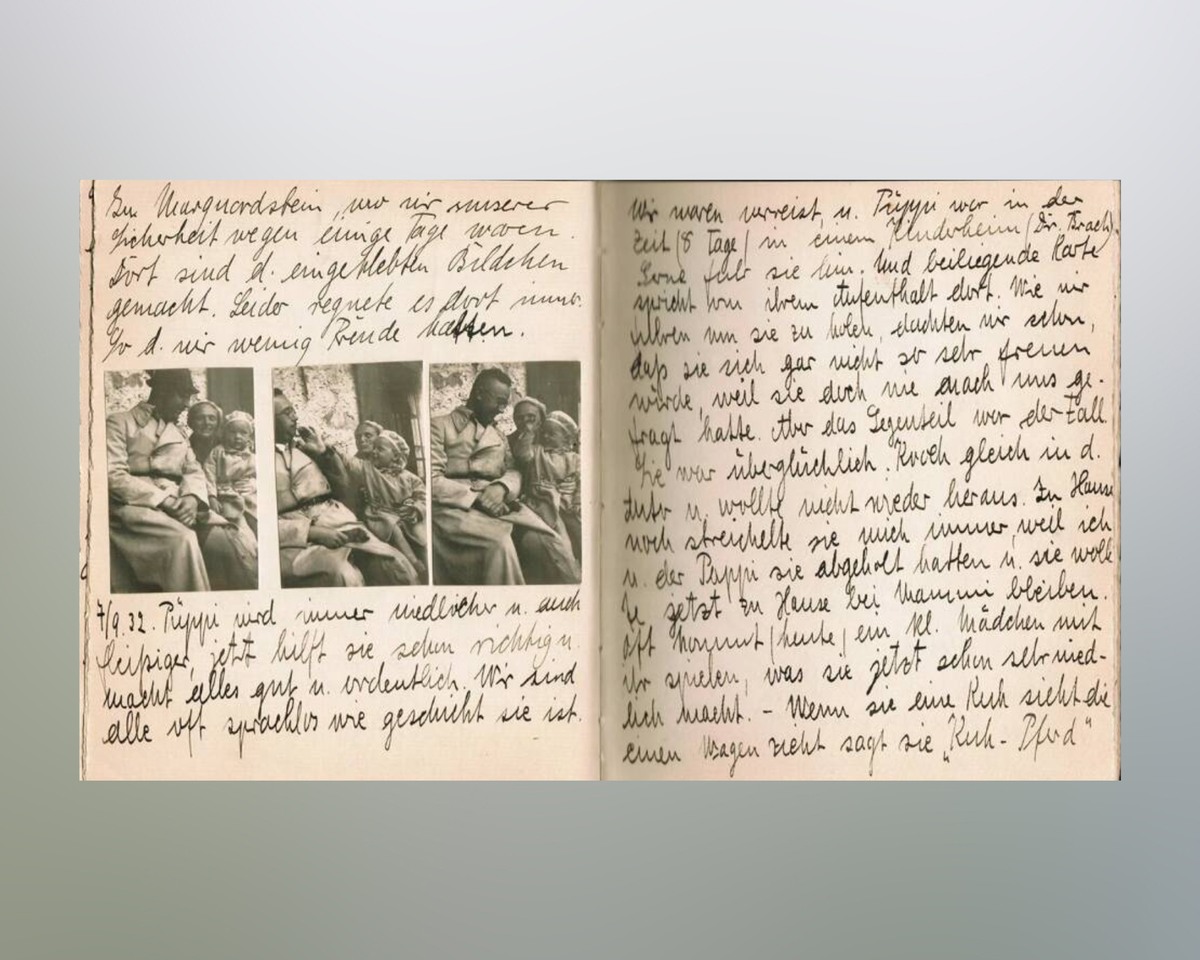 In Marquardstein, wo wir unserer
Sicherheit wegen einige Tage waren.
Dort sind d. eingeklebten Bildchen
gemacht. Leider regnete es dort immer.
So d. wir wenig Freude hatten.
7/9.32. Püppi wird immer niedlicher u. auch
fleißiger, jetzt hilft sie schon richtig u.
macht alles gut u. ordentlich. Wir sind
alle oft sprachlos wie geschickt sie ist.
Wir waren verreist, u. Püppi war in der
Zeit (8 Tage) in einem Kinderheim (Dr. Trach).
Gerne fuhr sie hin. Und beiliegende Karte
spricht von ihrem Aufenthalt dort. Wie wir
fuhren um sie zu holen, dachten wir schon,
daß sie sich gar nicht so sehr freuen
würde, weil sie doch nie nach uns ge-
fragt hatte. Aber das Gegenteil war der Fall.
Sie war überglücklich. Kroch gleich in d.
Auto u. wollte nicht wieder heraus. Zu Hause
noch streichelte sie mich immer, weil ich
u. der Pappi sie abgeholt hatten u. sie woll
te jetzt zu Hause bei Mammi bleiben.
Oft kommt (heute) ein kl. Mädchen mit
ihr spielen, was sie jetzt schon sehr nied-
lich macht. – Wenn sie eine Kuh sieht die
einen Wagen zieht sagt sie „Kuh-Pferd"